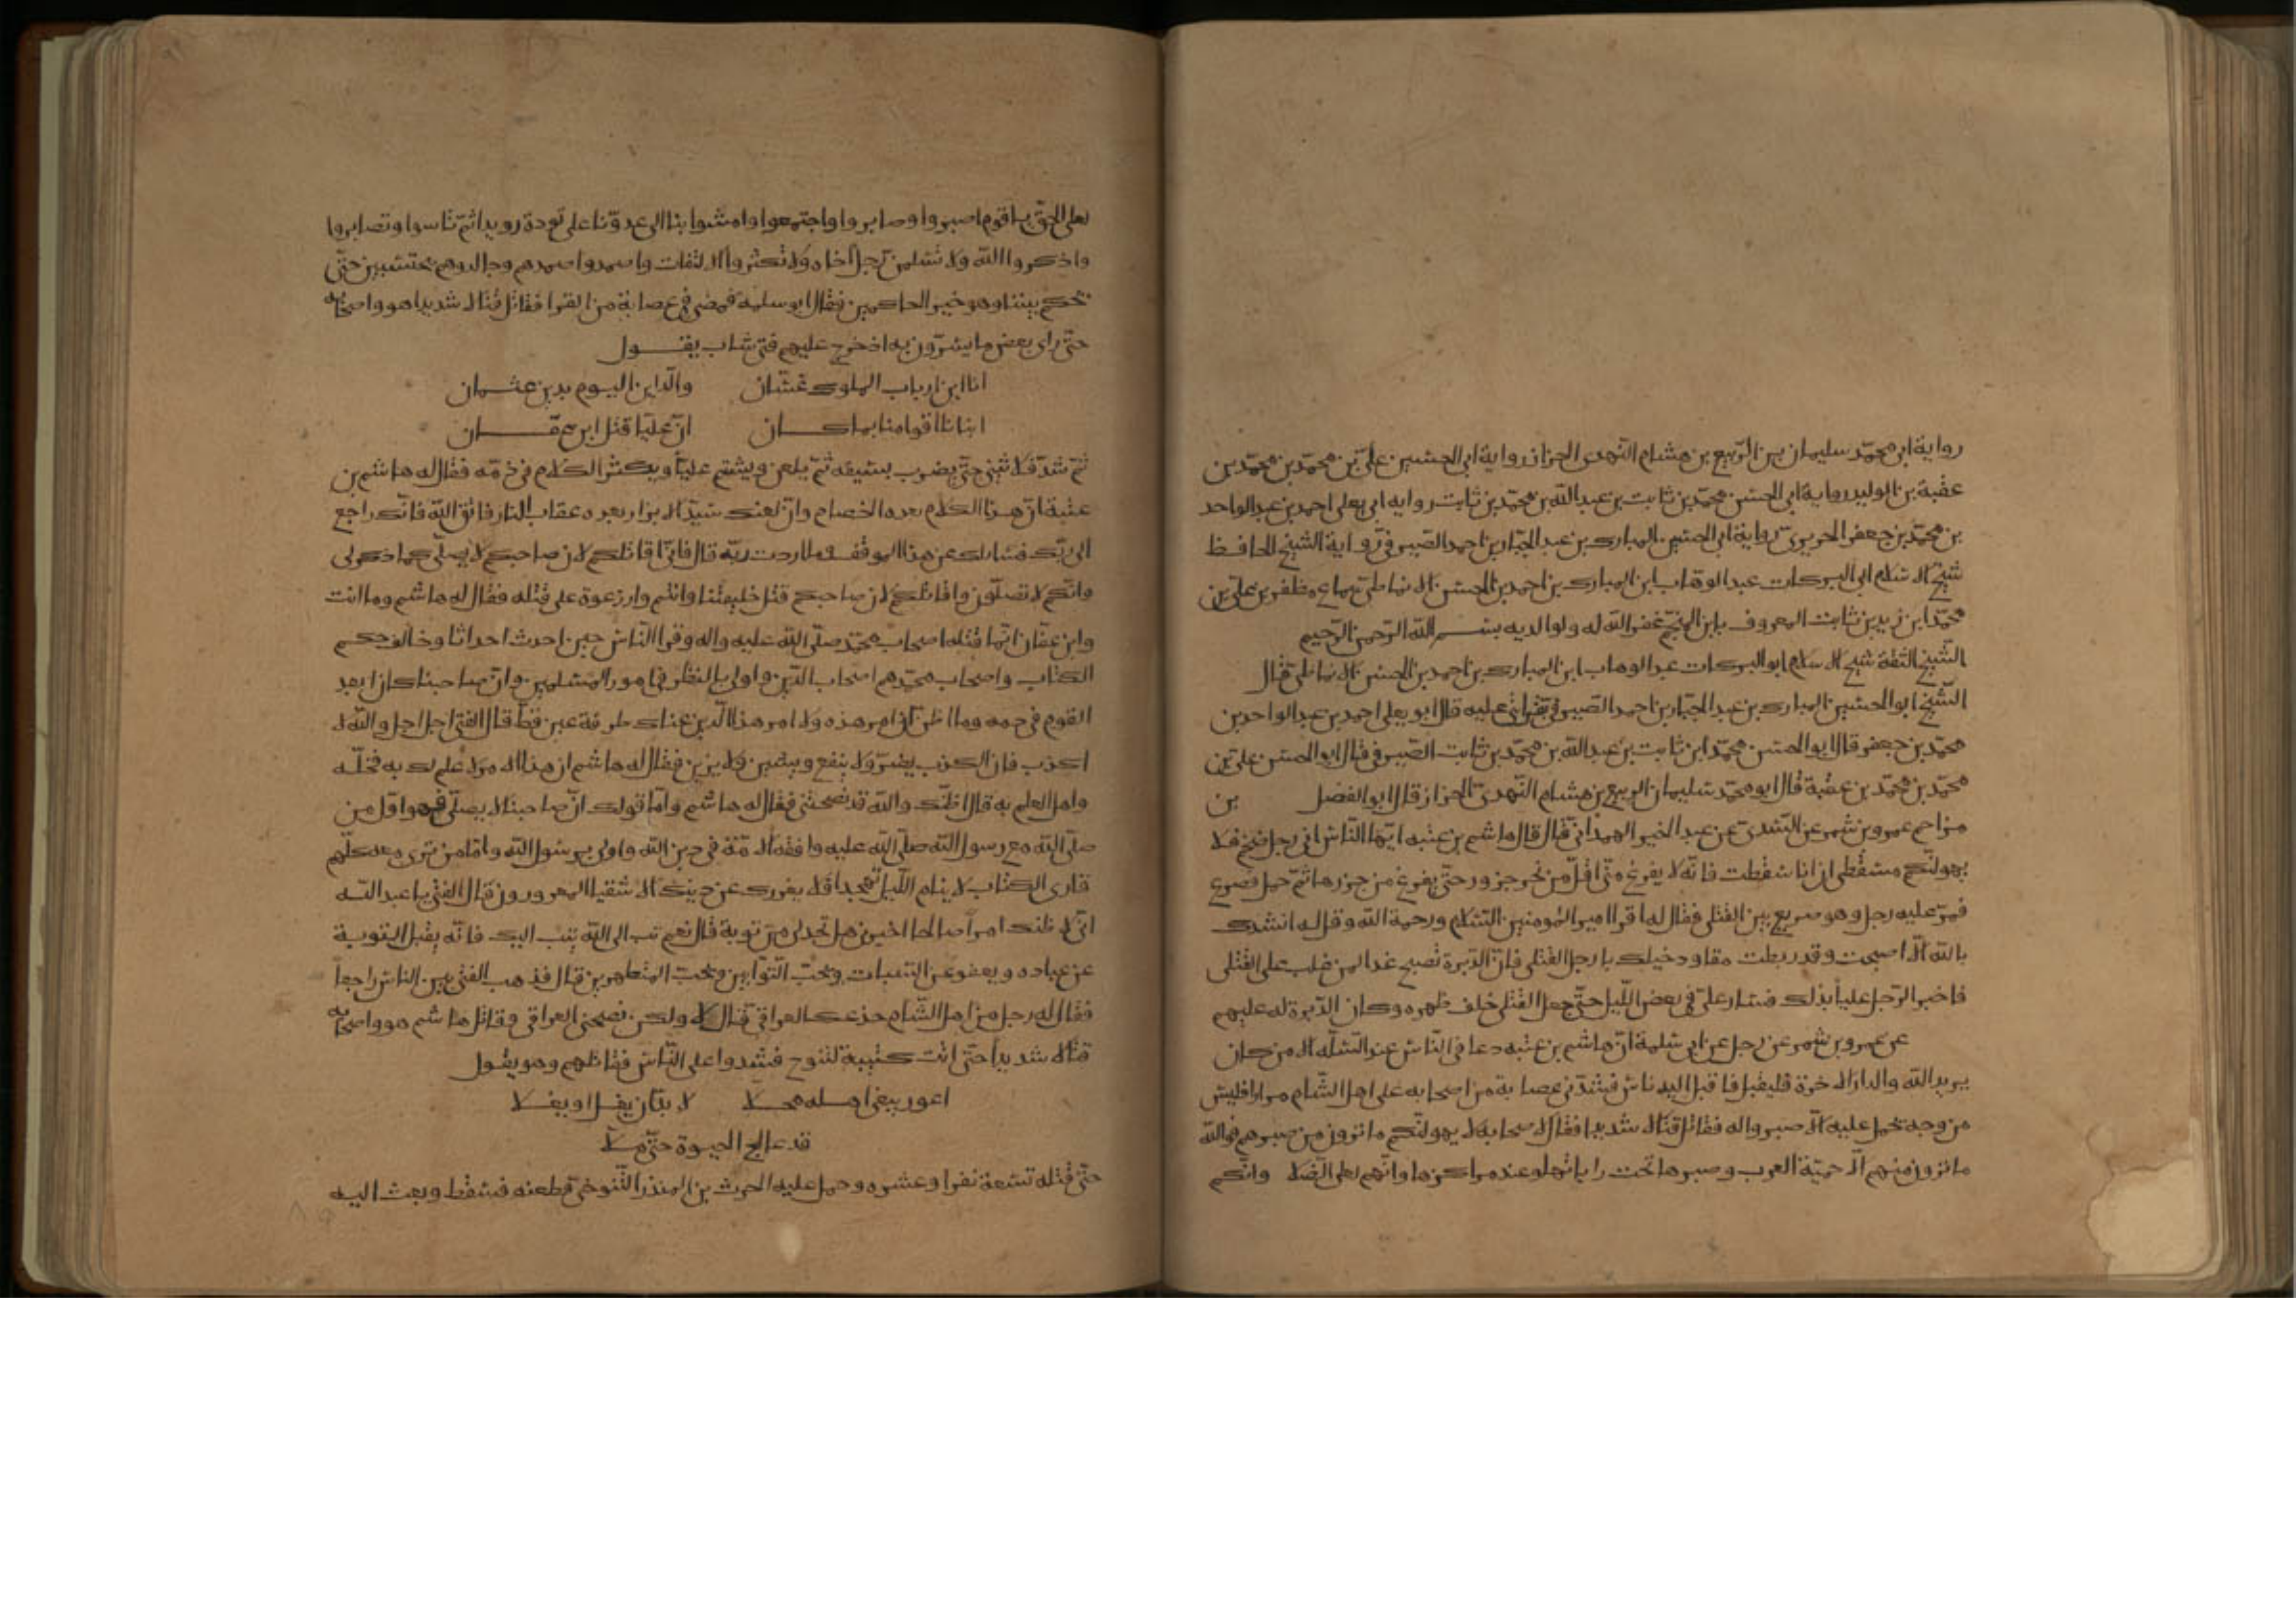 رواية ابى محمّد سليمان بن الرّبيع بن هشام النّهدى الخزاز رواية ابى الحسين علىّ بن محمّد بن محمّد بن
عقبة بن الوليد رواية ابى الحسن محمّد بن ثابت بن عبد الله بن محمّد بن ثابت رواية ابى يعلى احمد بن عبد الواحد
بن محمّد بن جعفر الحريرىّ رواية ابى الحسين المبارك بن عبد الجبّار بن احمد الصّيرفىّ رواية الشيخ الحافظ
شيخ الاسلام ابى البركات عبد الوهاب ابن المبارك بن احمد بن الحسن الانماطى سماع مظفر بن علىّ بن
محمّد ابن زيد بن ثابت المعروف بابن المنجّم غفر الله له ولوالديه بسم الله الرّحمن الرّحيم
الشيخ الثقة شيخ الاسلام ابو البركات عبد الوهاب ابن المبارك بن احمد بن الحسن الانماطى قال
الشّيخ ابو الحسين المبارك بن عبد الجبّار بن احمد الصّيرفى بقراتى عليه قال ابو يعلى احمد بن عبد الواحد بن
محمّد بن جعفر قال ابو الحسن محمّد ابن ثابت بن عبد الله بن محمّد بن ثابت الصّيرفى قال ابو الحسن علىّ بن
محمّد بن محمّد بن عقبة قال ابو محمّد سليمان الربيع بن هشام النّهدىّ الخزاز قال ابو الفضل بن
مزاحم عمرو بن شمر عن السّدىّ عن عبد الخير الهمدانىّ قال قال هاشم بن عتبه ايّها النّاس انى رجل ضخم فلا
يهولنّكم مسقطى ان انا سقطت فانّه لا يفرغ منّى اقلّ من نحر جزور حتّى يفرغ من جزرها ثمّ حمل فصرع
فمرّ عليه رجل وهو صريع بين القتلى فقال له اقرا امير المؤمنين السّلام ورحمة الله وقل له انشدك
بالله الّا اصبحت وقد ربطت مقاود خيلك بارجل القتلى فانّ الدّبرة تصبح غدا لمن غلب على القتلى
فاخبر الرّجل عليا بذلك فسار علىّ فى بعض اللّيل حتّى جعل القتلى خلف ظهره وكان الدّبرة له عليهم
عن عمرو بن شمر عن رجل عن ابى سلمة انّ هاشم بن عتبه دعا فى النّاس عند المساء الا من كان
يريد الله والدار الاخرة فليقبل فاقبل اليه ناس فشدّ فى عصابة من اصحابه على اهل الشّام مرارا فليس
من وجه يحمل عليه الّا صبروا له فقاتل قتالا شديدا فقال لاصحابه لا يهولنّكم ما ترون من صبرهم فوالله
ما ترون منهم الّا حميّة العرب وصبرها تحت راياتها وعند مراكزها وانّهم لعلى الضّلال وانّكم
لعلى الحقّ يا قوم اصبروا وصابروا واجتمعوا وامشوا بنا الى عدوّنا على تؤدة رويدا ثمّ تاسوا وتصابروا
واذكروا الله ولا تسلمن رجل اخاه ولا تكثروا الالتفات واصمدوا صمدهم وجالدوهم محتسبين حتّى
يحكم بيننا وهو خير الحاكمين فقال ابو سلمة فمضى فى عصابة من القرا فقاتل قتالا شديدا هو واصحابه
حتّى راى بعض ما يسرّون به اذ خرج عليهم فتى شاب يقول
انا ابن ارباب الملوك غسّان والدّاين اليوم بدين عثمان
انبانا اقوامنا بما كان انّ عليّا قتل ابن عفّان
ثمّ شدّ فلا يثنى حتّى يضرب بسيفه ثمّ يلعن ويشتم عليّا ويكثر الكلام فى ذمّه فقال له هاشم بن
عتبة انّ هذا الكلام بعده الخصام وانّ لعنك سيّد الابرار بعده عقاب النار فاتق الله فانّك راجع
الى ربّك فسائلك عن هذا الموقف وما اردت به قال فانّى اقاتلكم لان صاحبكم لا يصلّى كما ذكر لى
وانّكم لا تصلّون واقاتلكم لان صاحبكم قتل خليفتنا وانتم وازرتموه على قتله فقال له هاشم وما انت
وابن عفّان انّما قتله اصحاب محمّد صلّى الله عليه واله وقرا النّاس حين احدث احداثا وخالف حكم
الكتاب واصحاب محمّد هم اصحاب الدّين واولى بالنظر فى امور المسلمين وانّ صاحبنا كان ابعد
القوم فى دمه وما اظن انّ امر هذه ولا امر هذا الدّين عناك طرفة عين قطّ قال الفتى اجل اجل والله لا
اكذب فان الكذب يضرّ ولا ينفع ويشين ولا يزين فقال له هاشم ان هذا الامر لا علم لك به فخلّه
واهل العلم به قال اظنّك والله قد نصحتنى فقال له هاشم وامّا قولك انّ صاحبنا لا يصلّى فهو اوّل من
صلّى لله مع رسول الله صلّى الله عليه وافقه الامّة فى دين الله واولى برسول الله وامّا من ترى معه كلّهم
قارى الكتاب لا ينام اللّيل تهجدا فلا يغررك عن دينك الاشقيا المغرورون قال الفتى يا عبد الله
انّى لاظنك امرأ صالحا اخبرنى هل تجد لى من توبة قال نعم تب الى الله يتب اليك فانّه يقبل التوبة
عن عباده ويعفو عن السّيات ويحبّ التّوّابين ويحبّ المتطهرين قال فذهب الفتى بين الناس راجعاً
فقال له رجل من اهل الشّام خدعك العراقى قال لا ولكن نصحنى العراقى وقاتل هاشم هو واصحابه
قتالا شديداً حتّى اتت كتيبة لتنوخ فشدوا على النّاس فقاتلهم وهو يقول
اعور يبغى اهله محلا لا بدّ ان يفل او يفلا
قد عالج الحيوة حتّى ملّا
حتّى قتل تسعة نفر او عشره وحمل عليه الحرث بن المنذر التّنوخىّ فطعنه فسقط وبعث اليه